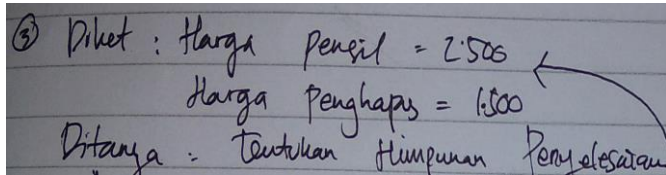 ③ Diket : Harga pensil = 2.500
Harga Penghapus = 1.500
Ditanya : Tentukan Himpunan Penyelesaian